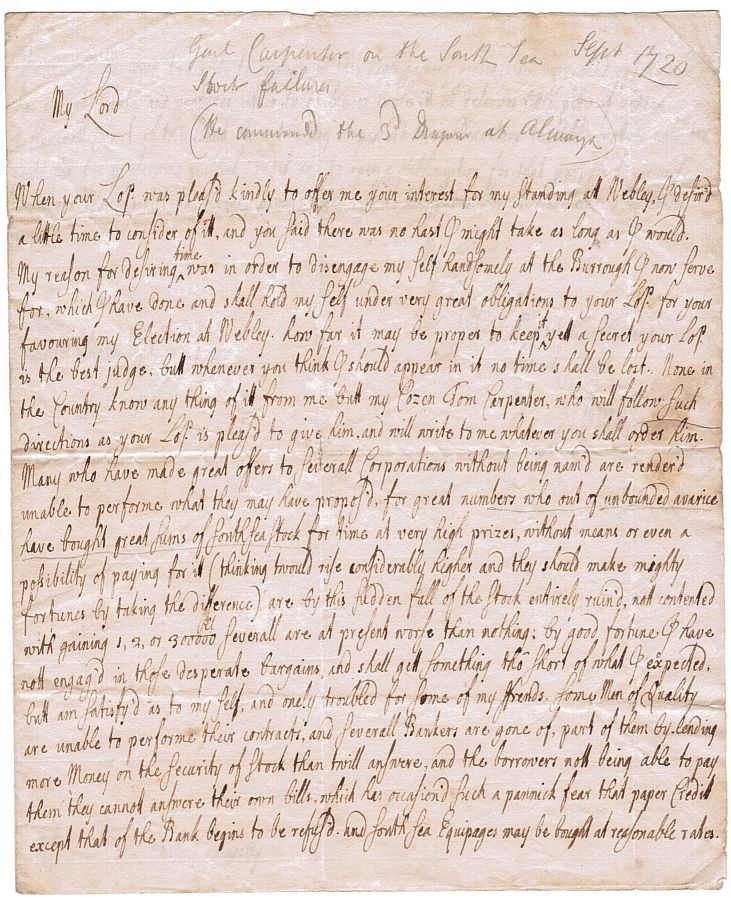 Genl Carpenter on the South Sea Sept 1720
Stock failures
(He commanded the 3d Dragoons at Almanza)
My Lord
When your Losp. was pleas'd kindly to offer me your interest for my standing att Webley, I desir'd
a little time to consider of itt, and you said there was no hast I might take as long as I would.
My reason for desiring time was in order to disengage my self handsomely at the Burrough I now serve
for, which I have done and shall hold my self under very great obligations to your Losp. for your
favouring my Election at Webley. how far it may be proper to keep it yett a secret your Losp
is the best judge, butt whenever you think I should appear in it no time shall be lost. None in
the Country know any thing of itt from me butt my Cozen Tom Carpenter, who will follow such
directions as your Losp. is pleas'd to give him, and will write to me whatever you shall order him.
Many who have made great offers to severall Corporations without being nam'd are render'd
unable to performe what they may have propos'd, for great numbers who out of unbounded avarice
have bought great sums of South sea stock for time at very high prizes, without means or even a
possibility of paying for itt (thinking twould rise considerably higher and they should make mighty
fortunes by taking the difference) are by this sudden fall of the stock entirely ruin'd, not contented
with gaining 1, 2, or 300000 ll severall are at present worse than nothing; by good fortune I have
nott engag'd in those desperate bargains, and shall gett something tho short of what I expected,
butt am satisfy'd as to my self, and onely troubled for some of my ffrends. some Men of Quality
are unable to performe their contracts, and severall Bankers are gone of, part of them by lending
more Money on the security of stock than twill answere, and the borrowers nott being able to pay
them they cannott answere their own bills, which has occasion'd such a pannick fear that paper Creditt
except that of the Bank begins to be refus'd. and South sea Equipages may be bought at reasonable rates.